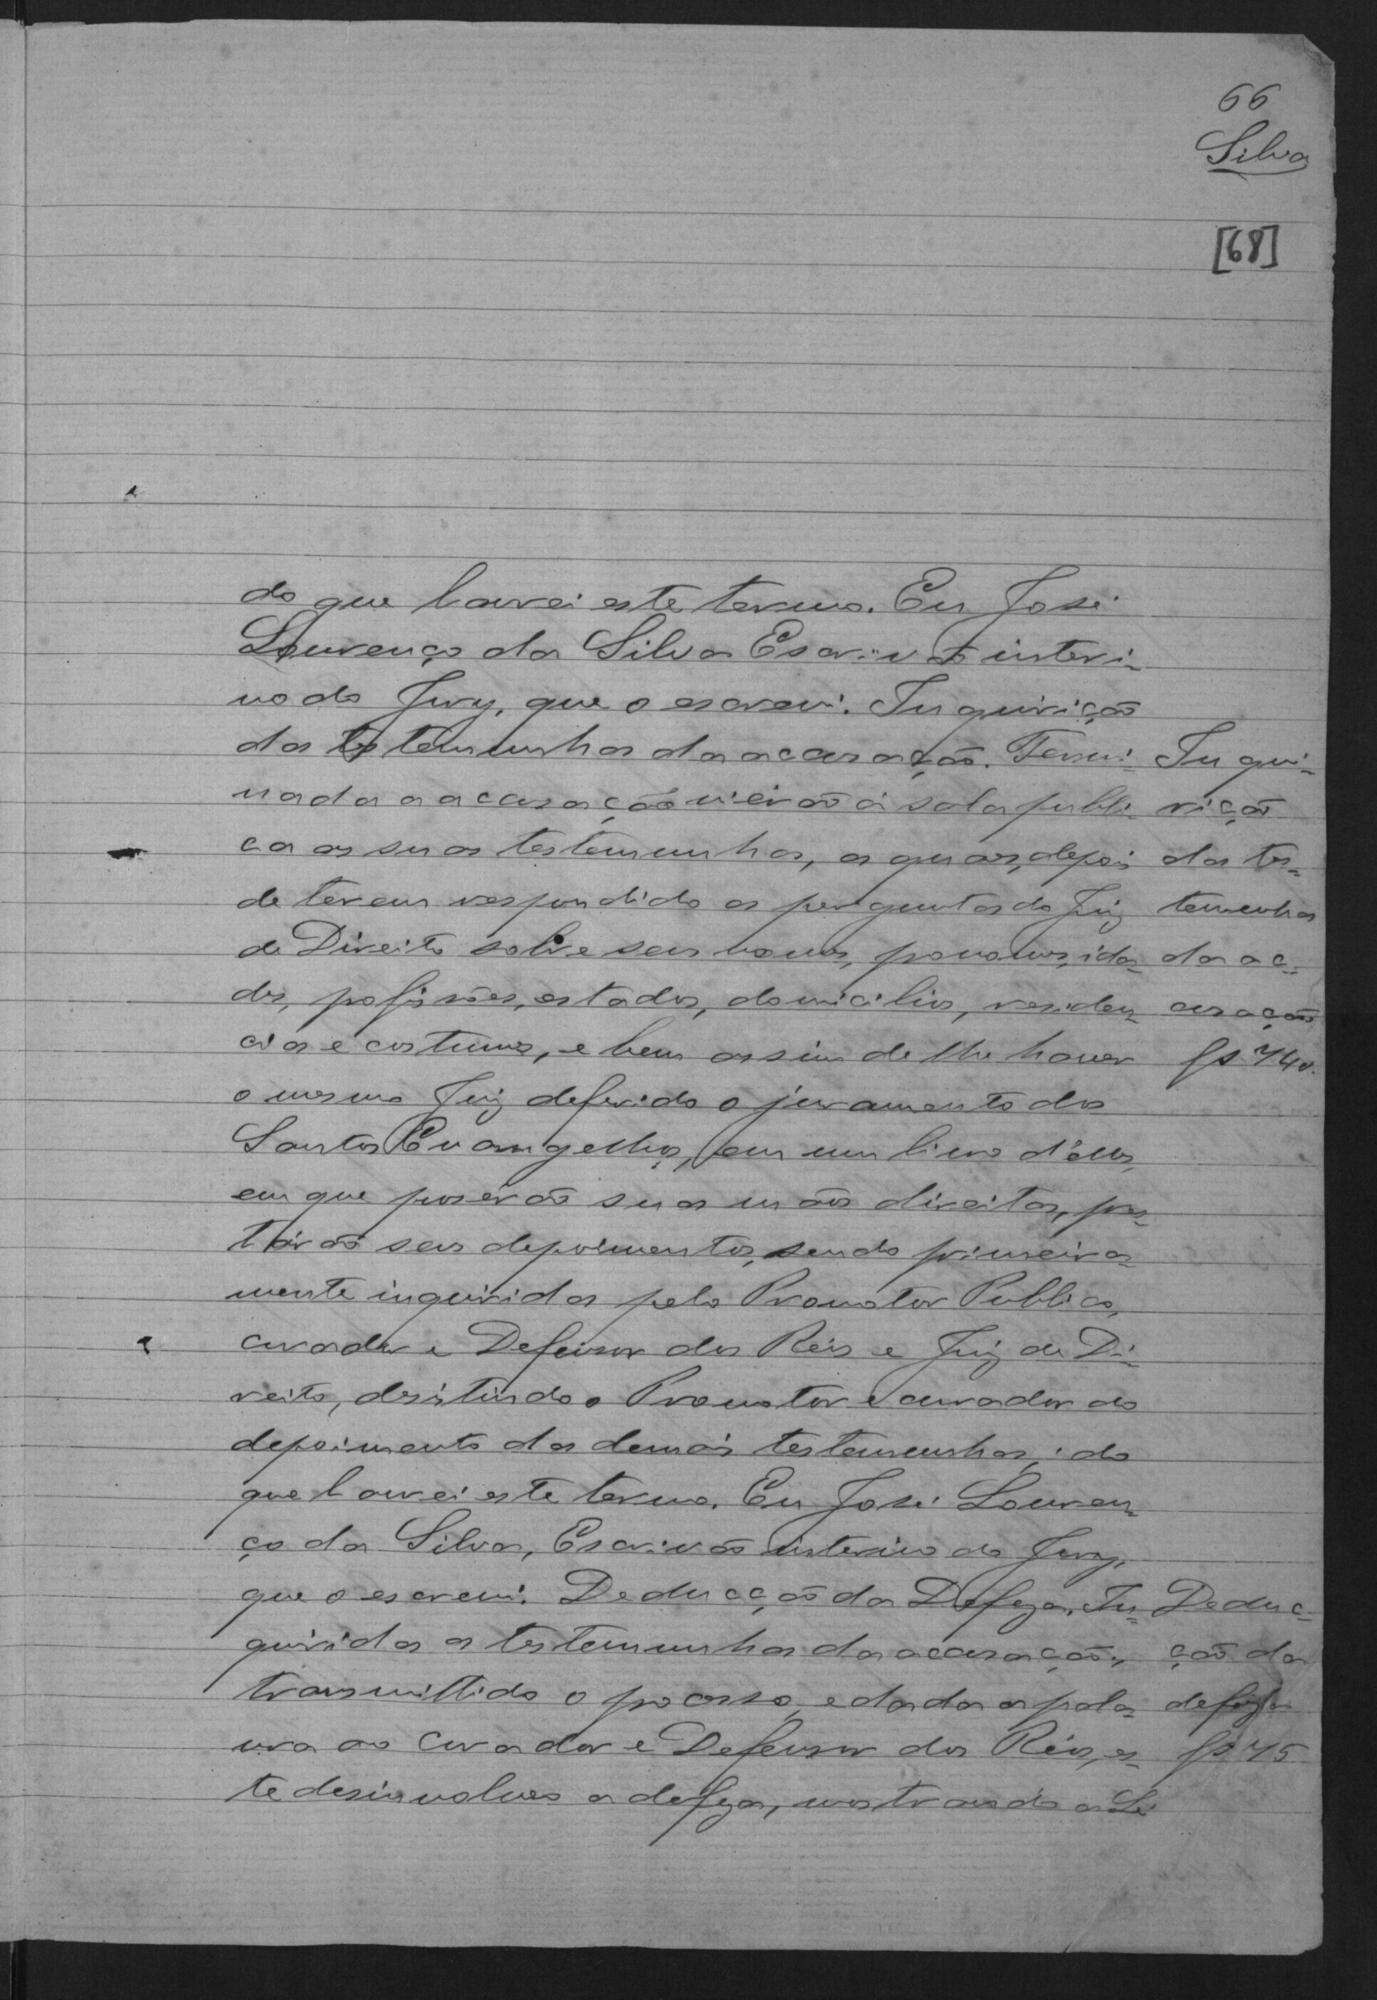 66
Silva
[68]
do que lavrei este termo. Eu José
Lourenço da Silva Escrivão interi-
no do Jury, que o escrevi. Inquirição
das testemunhas da accusação. Termi-
nada a accusação vierão á sala publi-
ca as suas testemunhas, as quaes, depois
de terem respondido as perguntas do Juiz
de Direito sobre seus nomes, pronomes, ida-
des, profissões, estados, domicilios, residen-
cias e costumes, e bem assim de lhe haver
o mesmo Juiz deferido o juramento dos
Santos Evangelhos, em um livro d'elles,
em que poserão suas mãos direitas, pres-
tárão seus depoimentos, sendo primeira-
mente inquiridas pelo Promotor Publico,
curador e Defensor dos Réis e Juiz de Di-
reito, desistindo o Promotor e curador do
depoimento das demais testemunhas; do
que lavrei este termo. Eu José Louren-
ço da Silva, Escrivão interino do Jury,
que o escrevi. Deducção da Defeza. In-
quiridas as testemunhas da accusação,
transmittido o processo, e dada a pala-
vra ao Curador e Defensor dos Réos, es-
te desinvolveo a defeza, mostrando a Lei
Inqui-
rição
das tes-
temunhas
da ac-
cusação
fs. 74v.
Deduc-
ção da
defeza
fs. 75